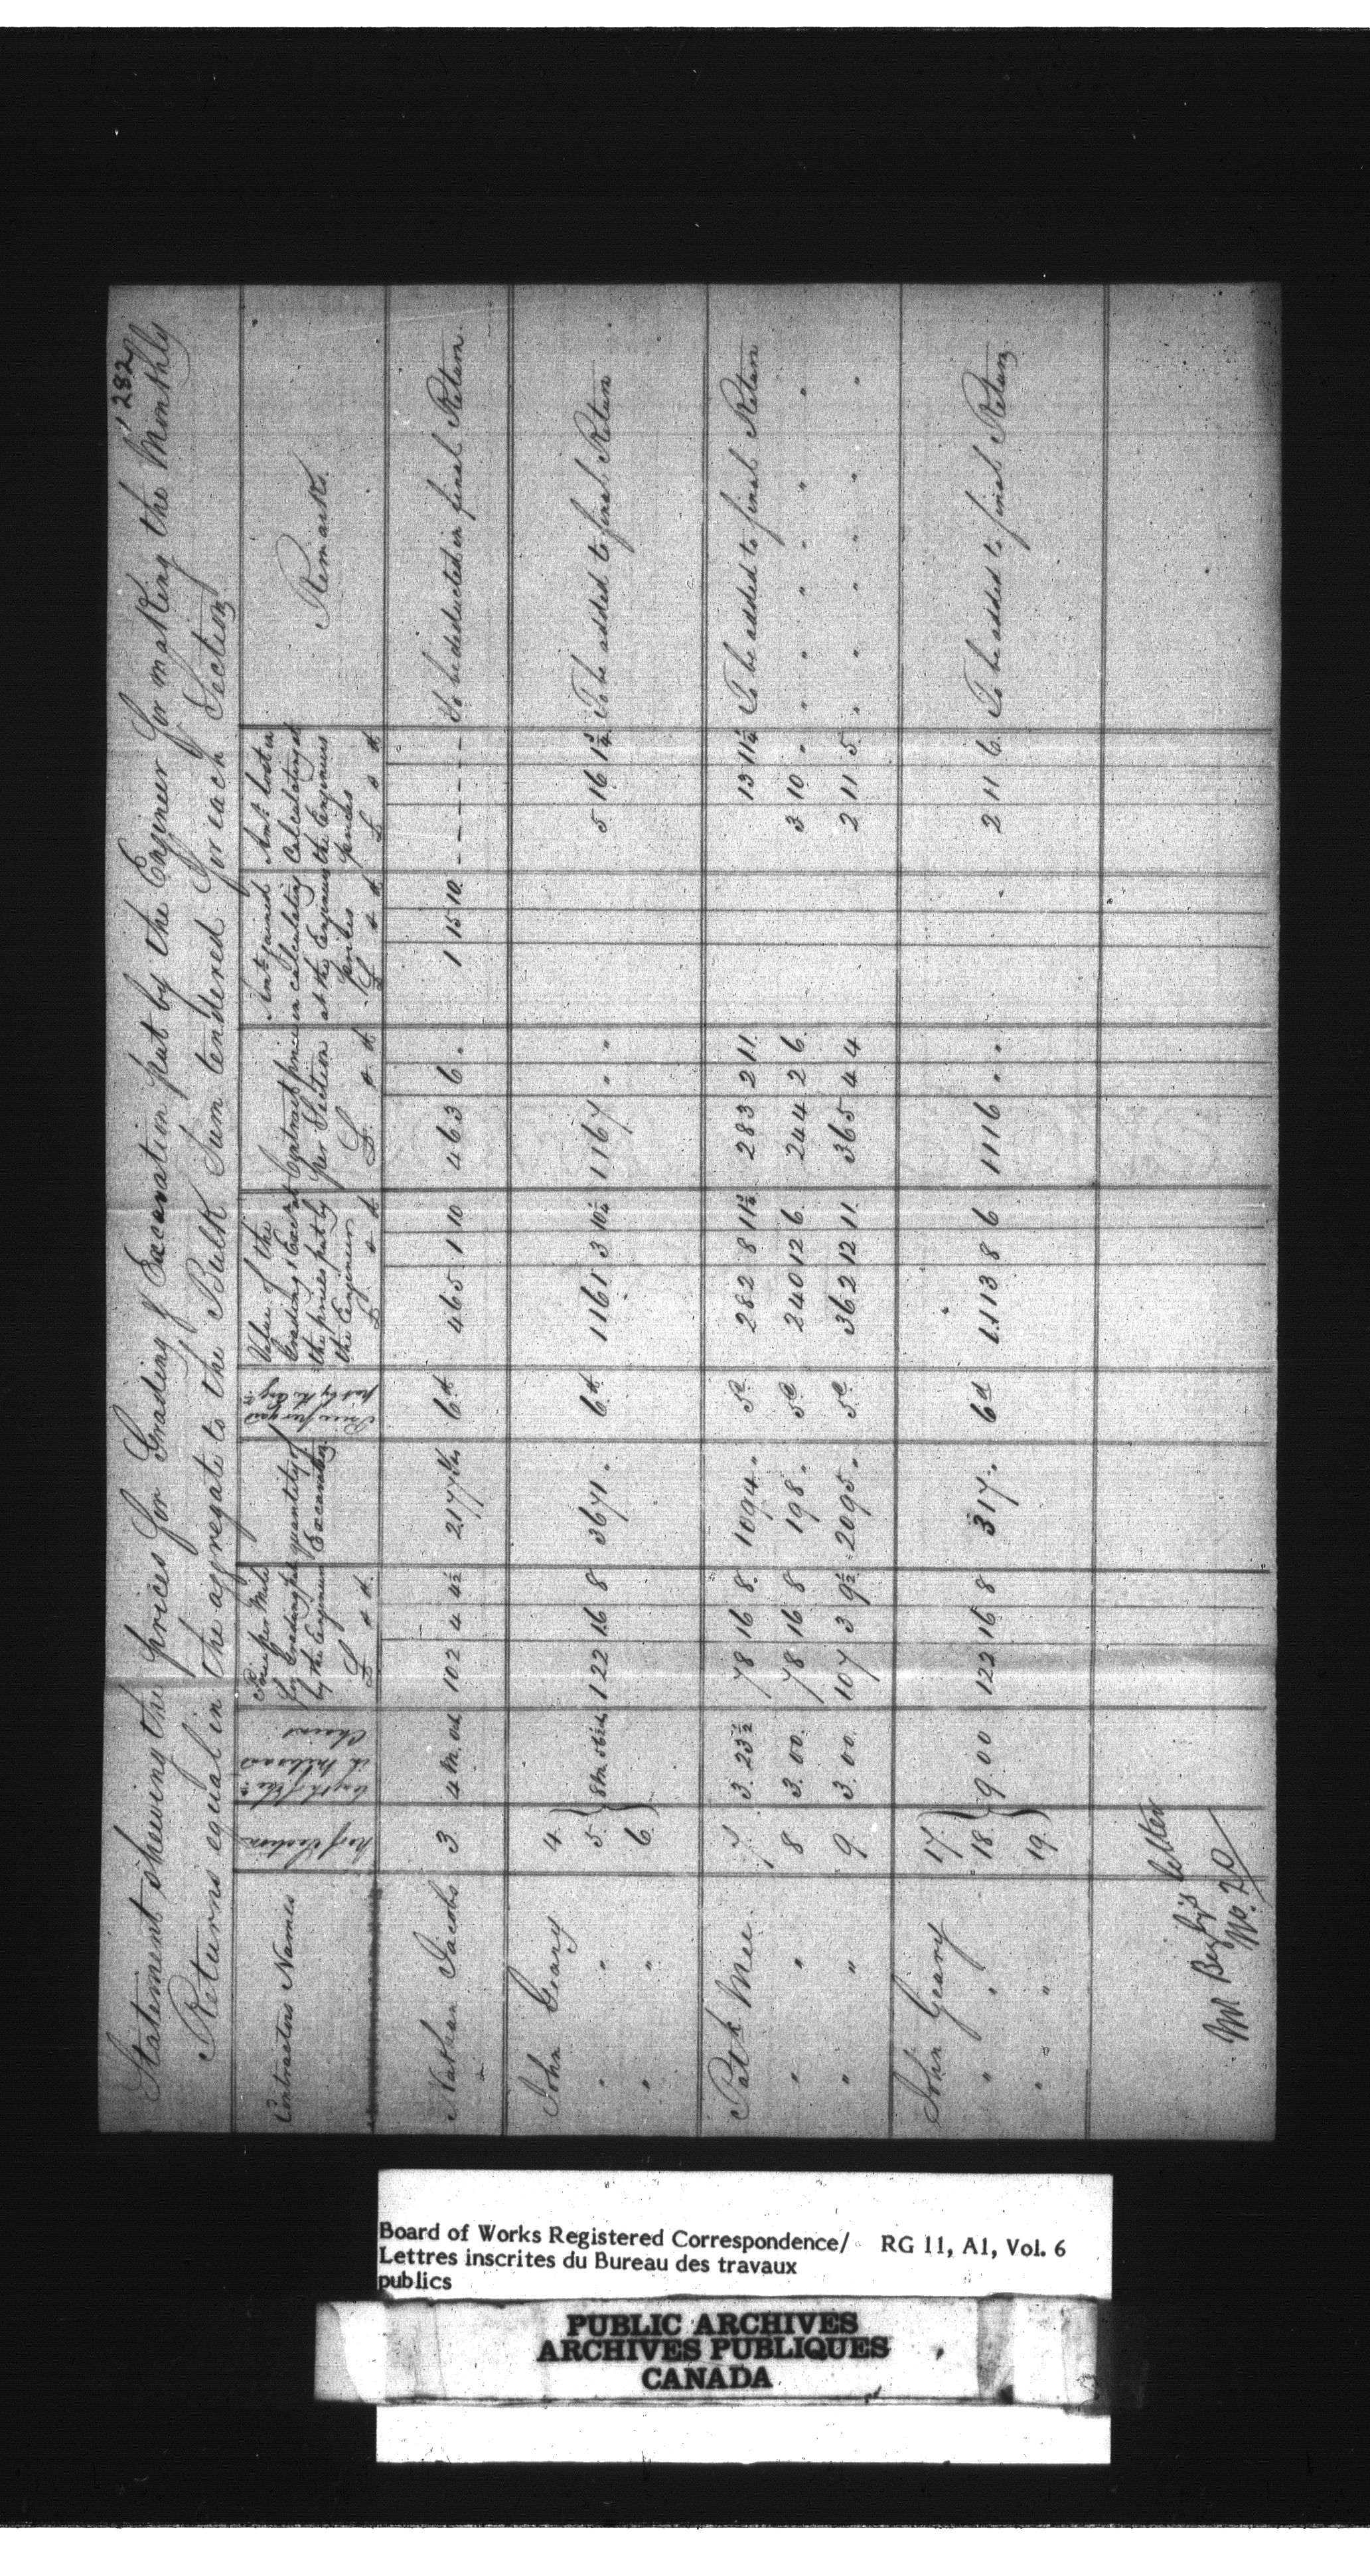 1282
Statement shewing the prices for Grading & Excavation put by the Engineer for making the Monthly
Returns equal in the aggregate to the Bulk Sum tendered for each Section
Contractors Names
No of Section
Length of the
in Miles and
Chains
Price per Mile
for Grading put
by the Engineer
£ s d
quantity of
Excavation
Price per yard
put by the Eng
Value of the
Grading & Excn at
the prices put by
the Engineer
£ s d
Contract price
per Section
£ s d
Amt gained
in calculating
at the Engineers
prices
£ s d
Amt lost in
Calculating at
the Engineers
prices
£ s d
Remarks
Nathan Jacobs 3 4 M. 102 4 4½ 2177 yds 6d 465 1 10 463 6 " 1 15 10 - - - - To be deducted in final Return
John Geary 4
" " 5 8 M. 122 16 8 3671 " 6d 1161 3 10½ 1167 " " 5 16 1½ To be added to final Return
" " 6
Patk Mee 7 3. 23½ 78 16 8 1094 " 5d 282 8 11½ 283 2 11 13 11½ To be added to final Return
" " 8 3. 00 78 16 8 198 " 5d 240 12 6 244 2 6 3 10 " " " " " " "
" " 9 3. 00 107 3 9½ 2095 " 5d 362 12 11 365 4 4 2 11 5 " " " " " "
John Geary 17
" " 18 9. 00 122 16 8 317 " 6d 1113 8 6 1116 " " 2 11 6 To be added to final Return
" " 19
Mr Begly's letter
No. 20
Board of Works Registered Correspondence/ RG 11, A1, Vol. 6
Lettres inscrites du Bureau des travaux
publics
PUBLIC ARCHIVES
ARCHIVES PUBLIQUES
CANADA